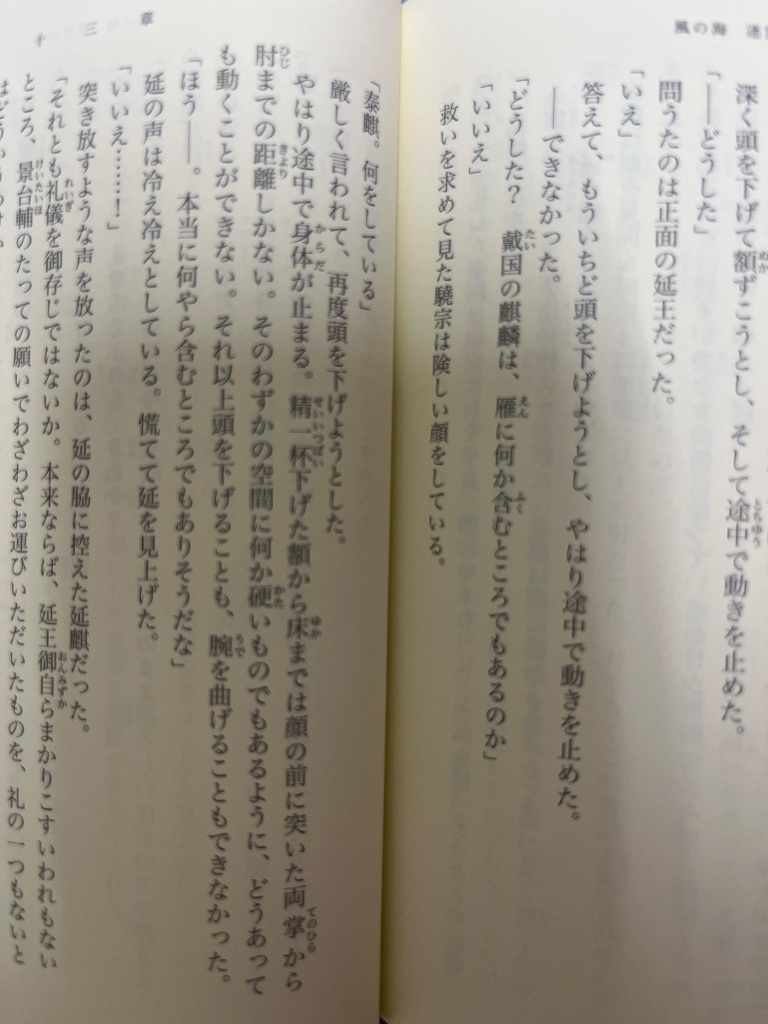 風の海
深く頭を下げて額ずこうとし、そして途中で動きを止めた。
「――どうした」
問うたのは正面の延王だった。
「いえ」
答えて、もういちど頭を下げようとし、やはり途中で動きを止めた。
――できなかった。
「どうした？　戴国の麒麟は、雁に何か含むところでもあるのか」
「いいえ」
救いを求めて見た驍宗は険しい顔をしている。
十三章
「泰麒。何をしている」
厳しく言われて、再度頭を下げようとした。
やはり途中で身体が止まる。精一杯下げた額から床までは顔の前に突いた両掌から
肘までの距離しかない。そのわずかの空間に何か硬いものでもあるように、どうあって
も動くことができない。それ以上頭を下げることも、腕を曲げることもできなかった。
「ほう――。本当に何やら含むところでもありそうだな」
延の声は冷え冷えとしている。慌てて延を見上げた。
「いいえ……！」
突き放すような声を放ったのは、延の脇に控えた延麒だった。
「それとも礼儀を御存じではないか。本来ならば、延王御自らまかりこすいわれもない
ところ、景台輔のたっての願いでわざわざお運びいただいたものを、礼の一つもないと